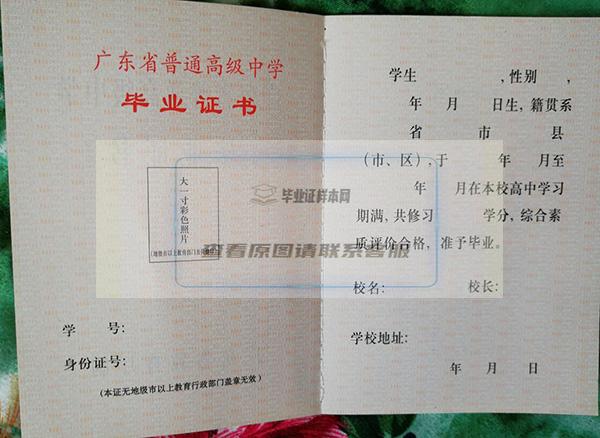 广东省普通高级中学
毕业证书
大一寸彩色照片
学 号:
身份证号:
(本证无地级市以上教育行政部门盖章无效)
学生 ,性别 ,
年 月 日生, 籍贯系
省 市 县
(市、区), 于 年 月至
年 月在本校高中学习
期满, 共修习 学分, 综合素
质评价合格, 准予毕业。
校名: 校长:
学校地址:
年 月 日
毕业证样本网
查看原图请联系客服